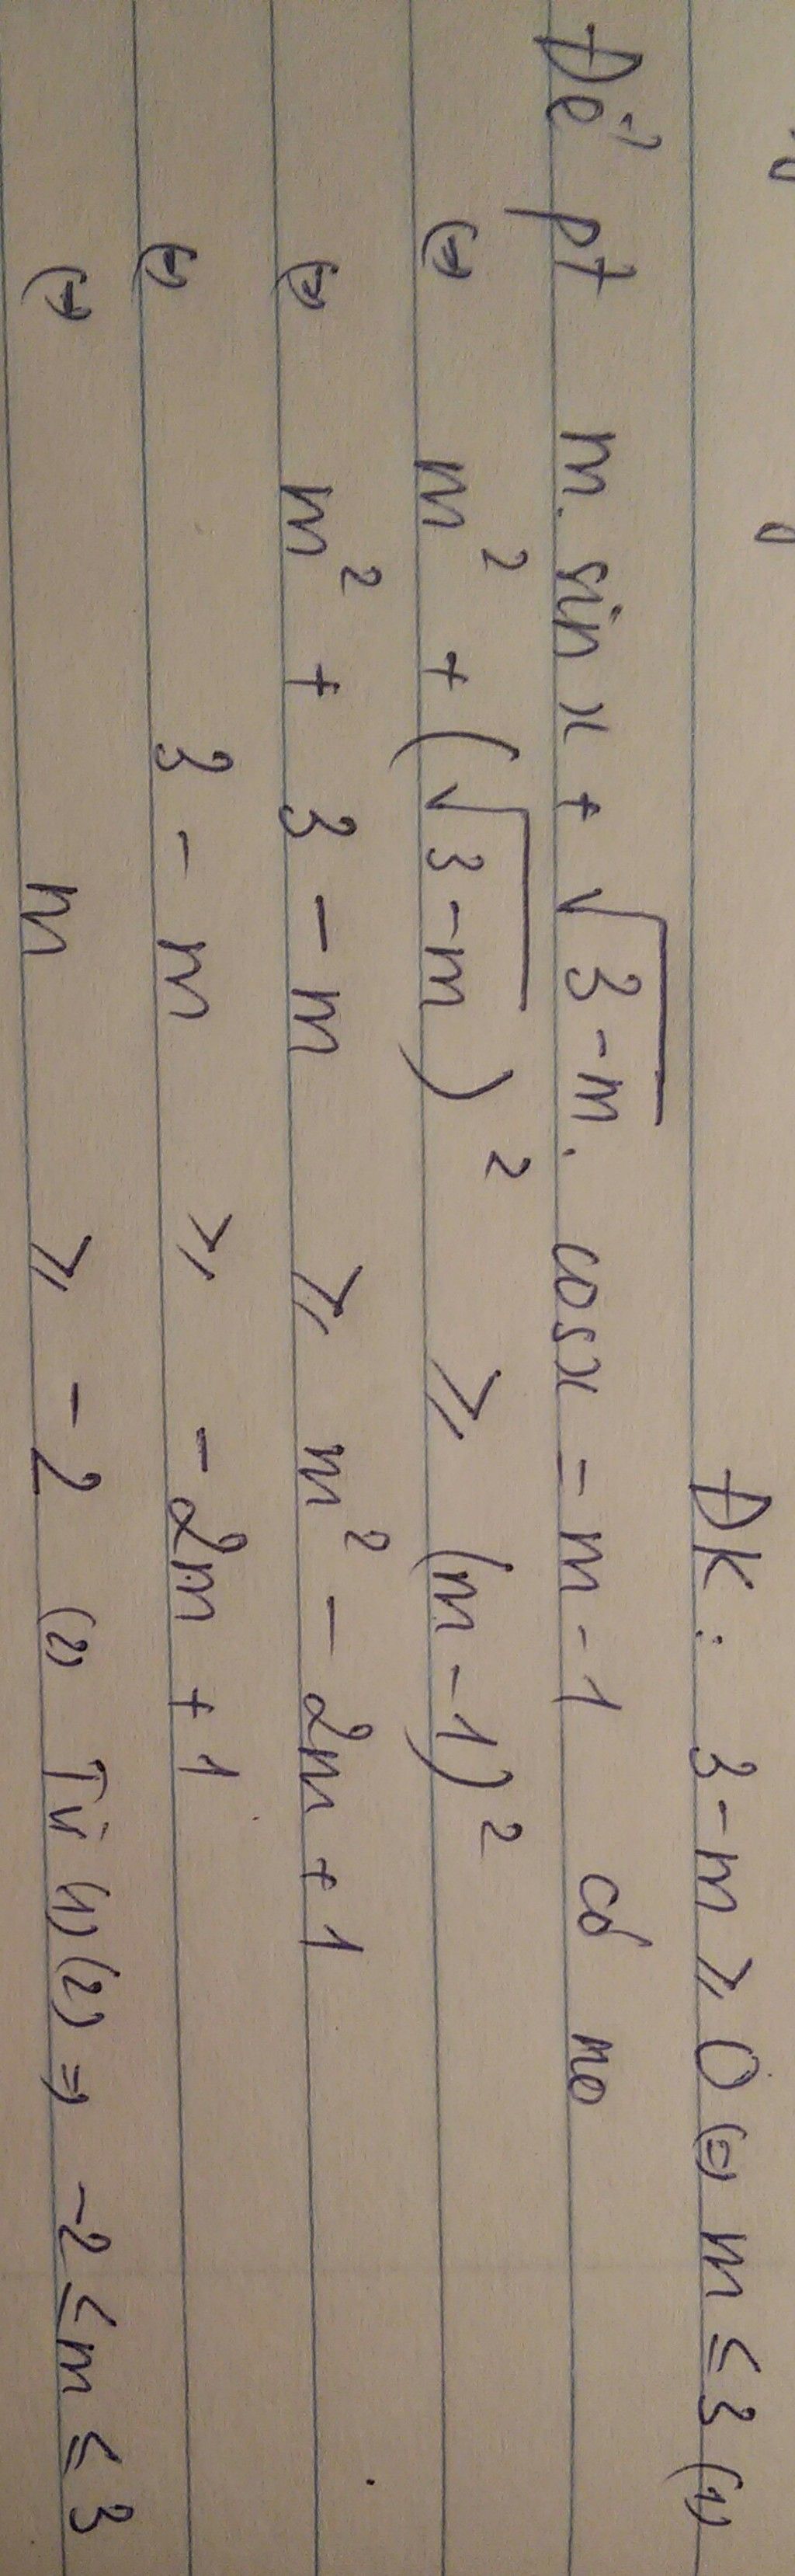 ĐK: 3-m ⩾ 0 ⇔ m ≤ 3 (1)
Để pt m.sin x + √(3-m). cosx = m-1 có no
⇔ m² + (√(3-m))² ⩾ (m-1)²
⇔ m² + 3 - m ⩾ m² - 2m + 1
⇔ 3 - m ⩾ -2m + 1
⇔ m ⩾ -2 (2) Từ (1) (2) ⇒ -2 ≤ m ≤ 3